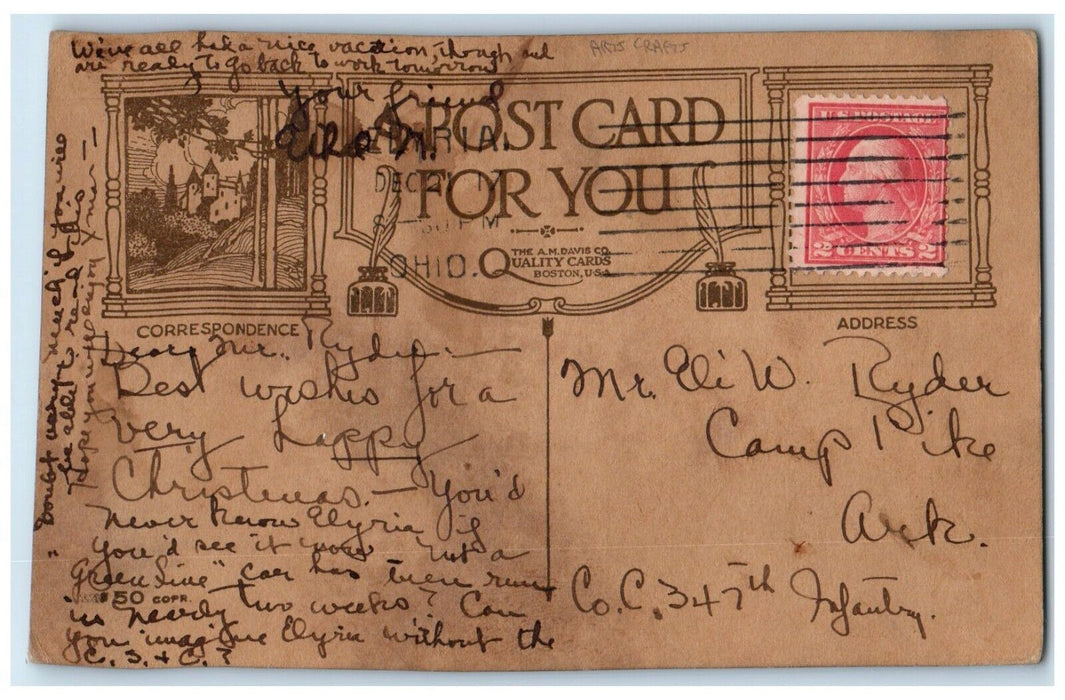 We've all had a nice vacation, though and
are ready to go back to work tomorrow
Your friend
ARTS CRAFTS
A POST CARD
FOR YOU
ELYRIA.
DEC 21 17
8 30 PM
OHIO.
THE A.M. DAVIS CO.
QUALITY CARDS
BOSTON, U.S.A.
U.S. POSTAGE
2 CENTS 2
CORRESPONDENCE
ADDRESS
Dear Mr. Ryder:—
Best wishes for a
very happy
Christmas. — You'd
never know Elyria if
you'd see it now not a
"Green Line" car has been run
in nearly two weeks? Can
you imagine Elyria without the
C. S. & C.?
50 COPR.
Doubt very much if you'll
be able to read this
Hope you will enjoy Xmas —
Mr. Eli W. Ryder
Camp Pike
Ark.
Co. C. 347th Infantry.